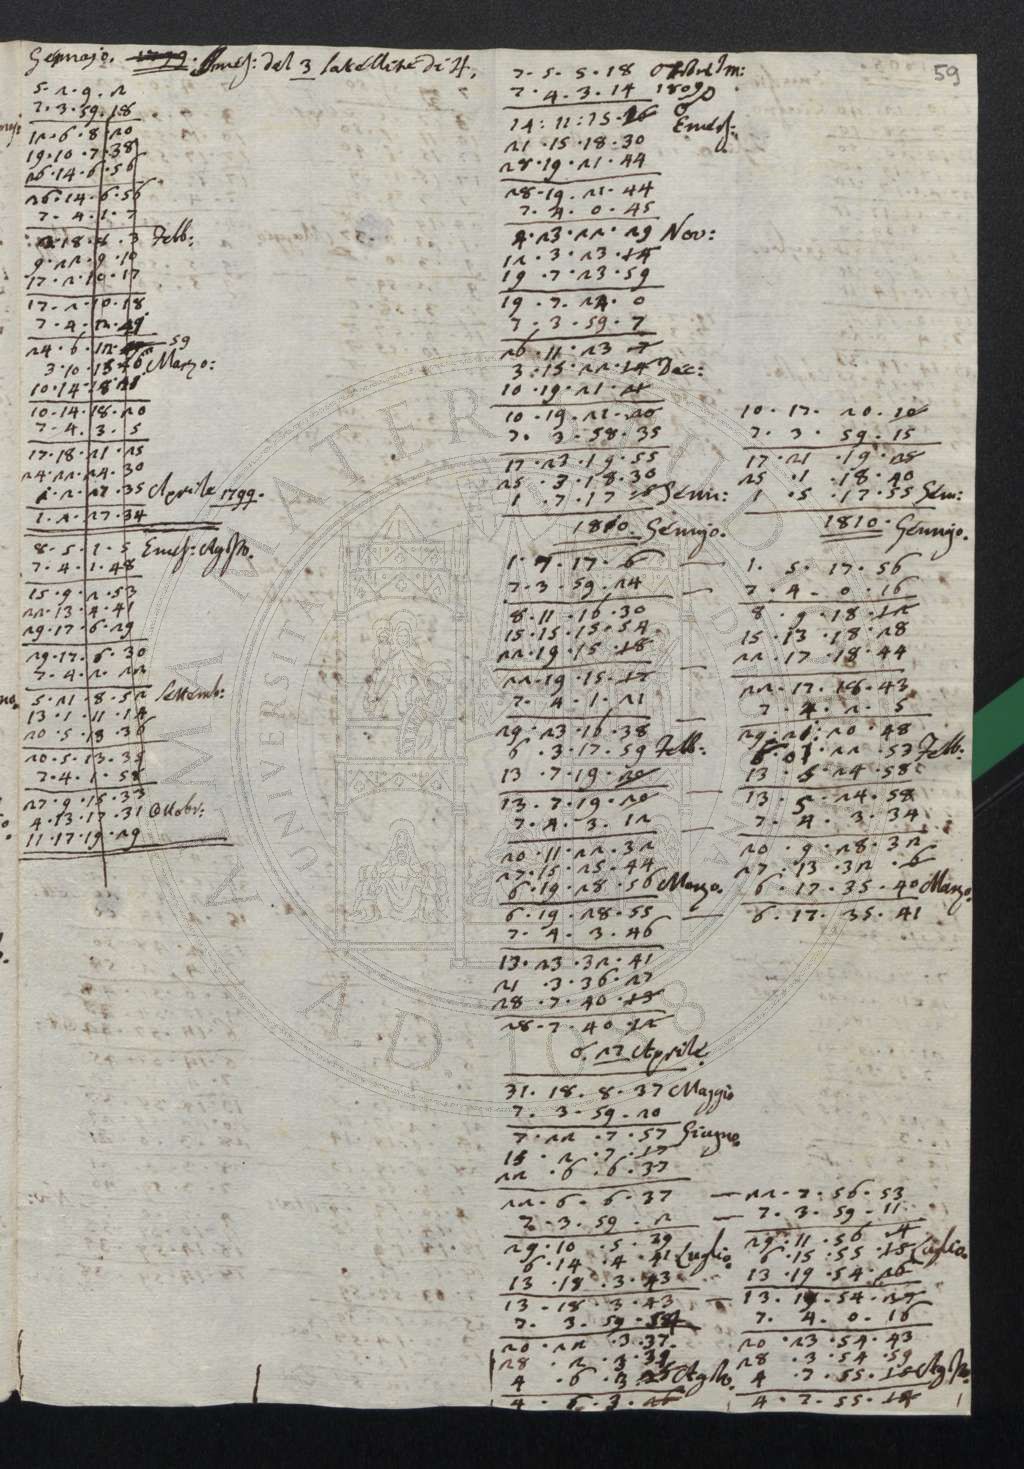 59
Gennajo. 1799. Emers: del 3 Satellite di ♃.
5. 2. 9. 2
7. 3. 59. 18
12. 6. 8. 20
19. 10. 7. 38
26. 14. 6. 56
26. 14. 6. 56
7. 4. 1. 7
2. 18. 8. 3 Febb:
9. 22. 9. 10
17. 2. 10. 17
17. 2. 10. 18
7. 4. 2. 29
24. 6. 12. 59
3. 10. 15. 46 Marzo:
10. 14. 18.
10. 14. 18. 20
7. 4. 3. 5
17. 18. 21. 25
24. 22. 24. 30
1. 2. 27. 35 Aprile 1799.
1. 2. 27. 34
8. 5. 1. 5 Emers: Agsto.
7. 4. 1. 48
15. 9. 2. 53
22. 13. 4. 41
29. 17. 6. 29
29. 17. 6. 30
7. 4. 2. 22
5. 21. 8. 52 Settemb:
13. 1. 11. 14
20. 5. 13. 36
20. 5. 13. 35
7. 4. 1. 58
27. 9. 15. 33
4. 13. 17. 31 Ottobr:
11. 17. 19. 29
7. 5. 5. 18 Ottobre Im:
7. 4. 3. 14 1809
14: 11: 15. 26 Emers:
21. 15. 18. 30
28. 19. 21. 44
28. 19. 21. 44
7. 4. 0. 45
4. 23. 22. 29 Nov:
12. 3. 23. 14
19. 7. 23. 59
19. 7. 24. 0
7. 3. 59. 7
26. 11. 23. 7
3. 15. 22. 14 Dec:
10. 19. 21. 21
10. 19. 21. 20
7. 3. 58. 35
17. 23. 19. 55
25. 3. 18. 30
1. 7. 17. 5 Genn:
1810. Gennajo.
1. 7. 17. 6
7. 3. 59. 24
8. 11. 16. 30
15. 15. 15. 54
22. 19. 15. 18
22. 19. 15. 17
7. 4. 1. 21
29. 23. 16. 38
6. 3. 17. 59 Febb:
13. 7. 19. 20
13. 7. 19. 20
7. 4. 3. 12
20. 11. 22. 32
27. 15. 25. 44
6. 19. 28. 56 Marzo.
6. 19. 28. 55
7. 4. 3. 46
13. 23. 32. 41
21. 3. 36. 27
28. 7. 40. 13
28. 7. 40. 12
6. 27 Aprile.
31. 18. 8. 37 Maggio
7. 3. 59. 20
7. 22. 7. 57 Giugno.
15. 2. 7. 17
22. 6. 6. 37
22. 6. 6. 37
7. 3. 59. 2
29. 10. 5. 39
6. 14. 4. 41 Luglio.
13. 18. 3. 43
13. 18. 3. 43
7. 3. 59. 54
20. 22. 3. 37
28. 2. 3. 39
4. 6. 3. 25 Agsto.
4. 6. 3. 26
10. 17. 20. 10
7. 3. 59. 15
17. 21. 19. 25
25. 1. 18. 40
1. 5. 17. 55 Gen:
1810. Gennajo.
1. 5. 17. 56
7. 4. 0. 16
8. 9. 18. 12
15. 13. 18. 28
22. 17. 18. 44
22. 17. 18. 43
7. 4. 2. 5
29. 21. 20. 48
6. 01. 22. 53 Febb:
13. 5. 24. 58
13. 5. 24. 58
7. 4. 3. 34
20. 9. 28. 32
27. 13. 32. 6
6. 17. 35. 40 Marzo.
6. 17. 35. 41
22. 7. 56. 53
7. 3. 59. 11
29. 11. 56. 4
6. 15. 55. 15 Luglio.
13. 19. 54. 26
13. 19. 54. 27
7. 4. 0. 16
20. 23. 54. 43
28. 3. 54. 59
4. 7. 55. 15 Agsto.
4. 7. 55. 14
ALMA MATER STUDIORUM
UNIVERSITA
A.D. 1088